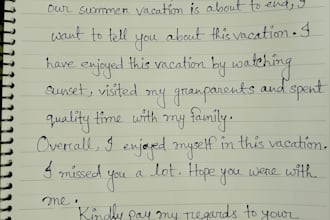 our summer vacation is about to end, I
want to tell you about this vacation. I
have enjoyed this vacation by watching
sunset, visited my granparents and spent
quality time with my family.
Overall, I enjoyed myself in this vacation.
I missed you a lot. Hope you were with
me.
Kindly pay my regards to your